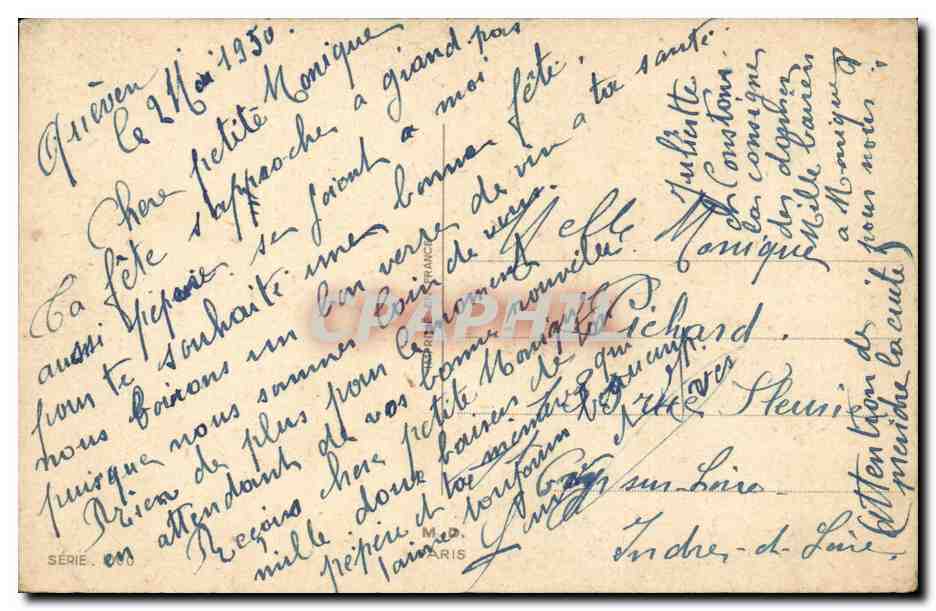 Quéven
le 2 Mai 1950.
Chere petite Monique
Ta fête s'approche a grand pas
aussi pépère se joient a moi
pour te souhaité une bonne fête.
nous boirons un bon verre de vin a ta santé.
puisque nous sommes loin de vous.
Rien de plus pour le moment
en attendant de vos bonne nouvelle
Reçois chere petite Monique
mille doux baisers de ta
pépère et ta memère qui
t'aime toujours
Juliette
et Constant
la consigne
des
Mille baisers
a Monique
pour nous
Attention de
prendre la cuite
Melle Monique
Pichard.
rue Fleurie
sur-Loire
Indre-et-Loire
IMPRIMÉ EN FRANCE
M.D.
PARIS
SÉRIE.
CPAPHIL